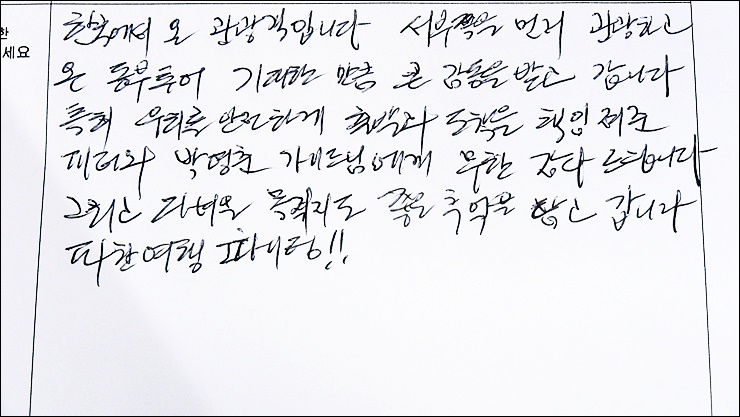 한
세요
한국에서 온 관광객입니다 서부쪽을 먼저 관광하고
온 동부투어 기대한 만큼 큰 감동을 받고 갑니다
특히 우리를 안전하게 숙박과 도착을 책임져준
피터와 박영훈 가이드님에게 무한 감다 드립니다
그리고 목적지도 좋은 추억을 안고 갑니다
파이팅!!